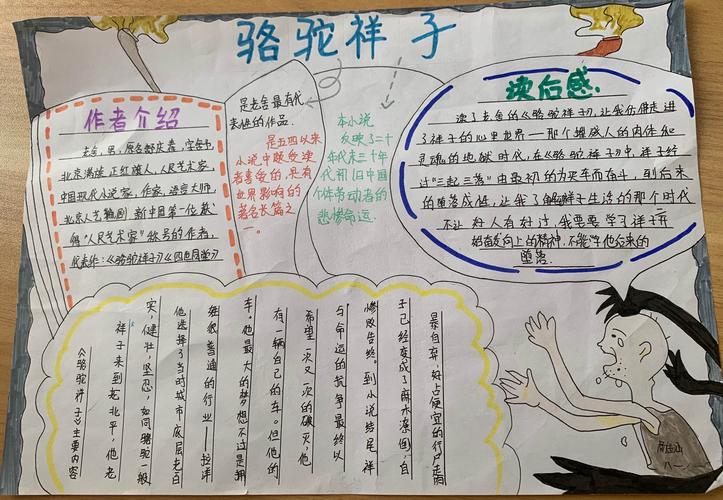 骆驼祥子
作者介绍
老舍,男,原名舒庆春,字舍予,
北京满族正红旗人,人民艺术家,
中国现代小说家,作家,语言大师
北京人艺编剧,新中国第一位获
得"人民艺术家"称号的作者,
代表作:《骆驼祥子》《四世同堂》
是老舍最有代
表性的作品.
是五四以来
小说中颇受读
者喜爱的,具有
世界影响的
著名长篇之
一。
本小说
反映了二十
年代末三十年
代初旧中国
个体劳动者的
悲惨命运.
读后感.
读了老舍的《骆驼祥子》,让我仿佛走进
了祥子的心里世界—那个摧残人的肉体和
灵魂的地狱时代,在《骆驼祥子》中,祥子经
过"三起三落"由最初的为买车而奋斗,到后来
的堕落成性,让我了解祥子生活的那个时代
不让好人有好过,我要要学了祥子开
始奋发向上的精神,不能学他后来的
堕落.
《骆驼祥子》主要内容
祥子来到老北平,他老
实,健壮,坚忍,如同骆驼一般
他选择了当时城市底层老百
姓很普通的行业——拉洋
车。他最大的梦想不过是拥
有一辆自己的车。但他的
希望一次又一次的破灭,他
与命运的抗争最终以
惨败告终。到小说结尾祥
子已经变成了麻木潦倒,自
暴自弃,好占便宜的行尸走肉